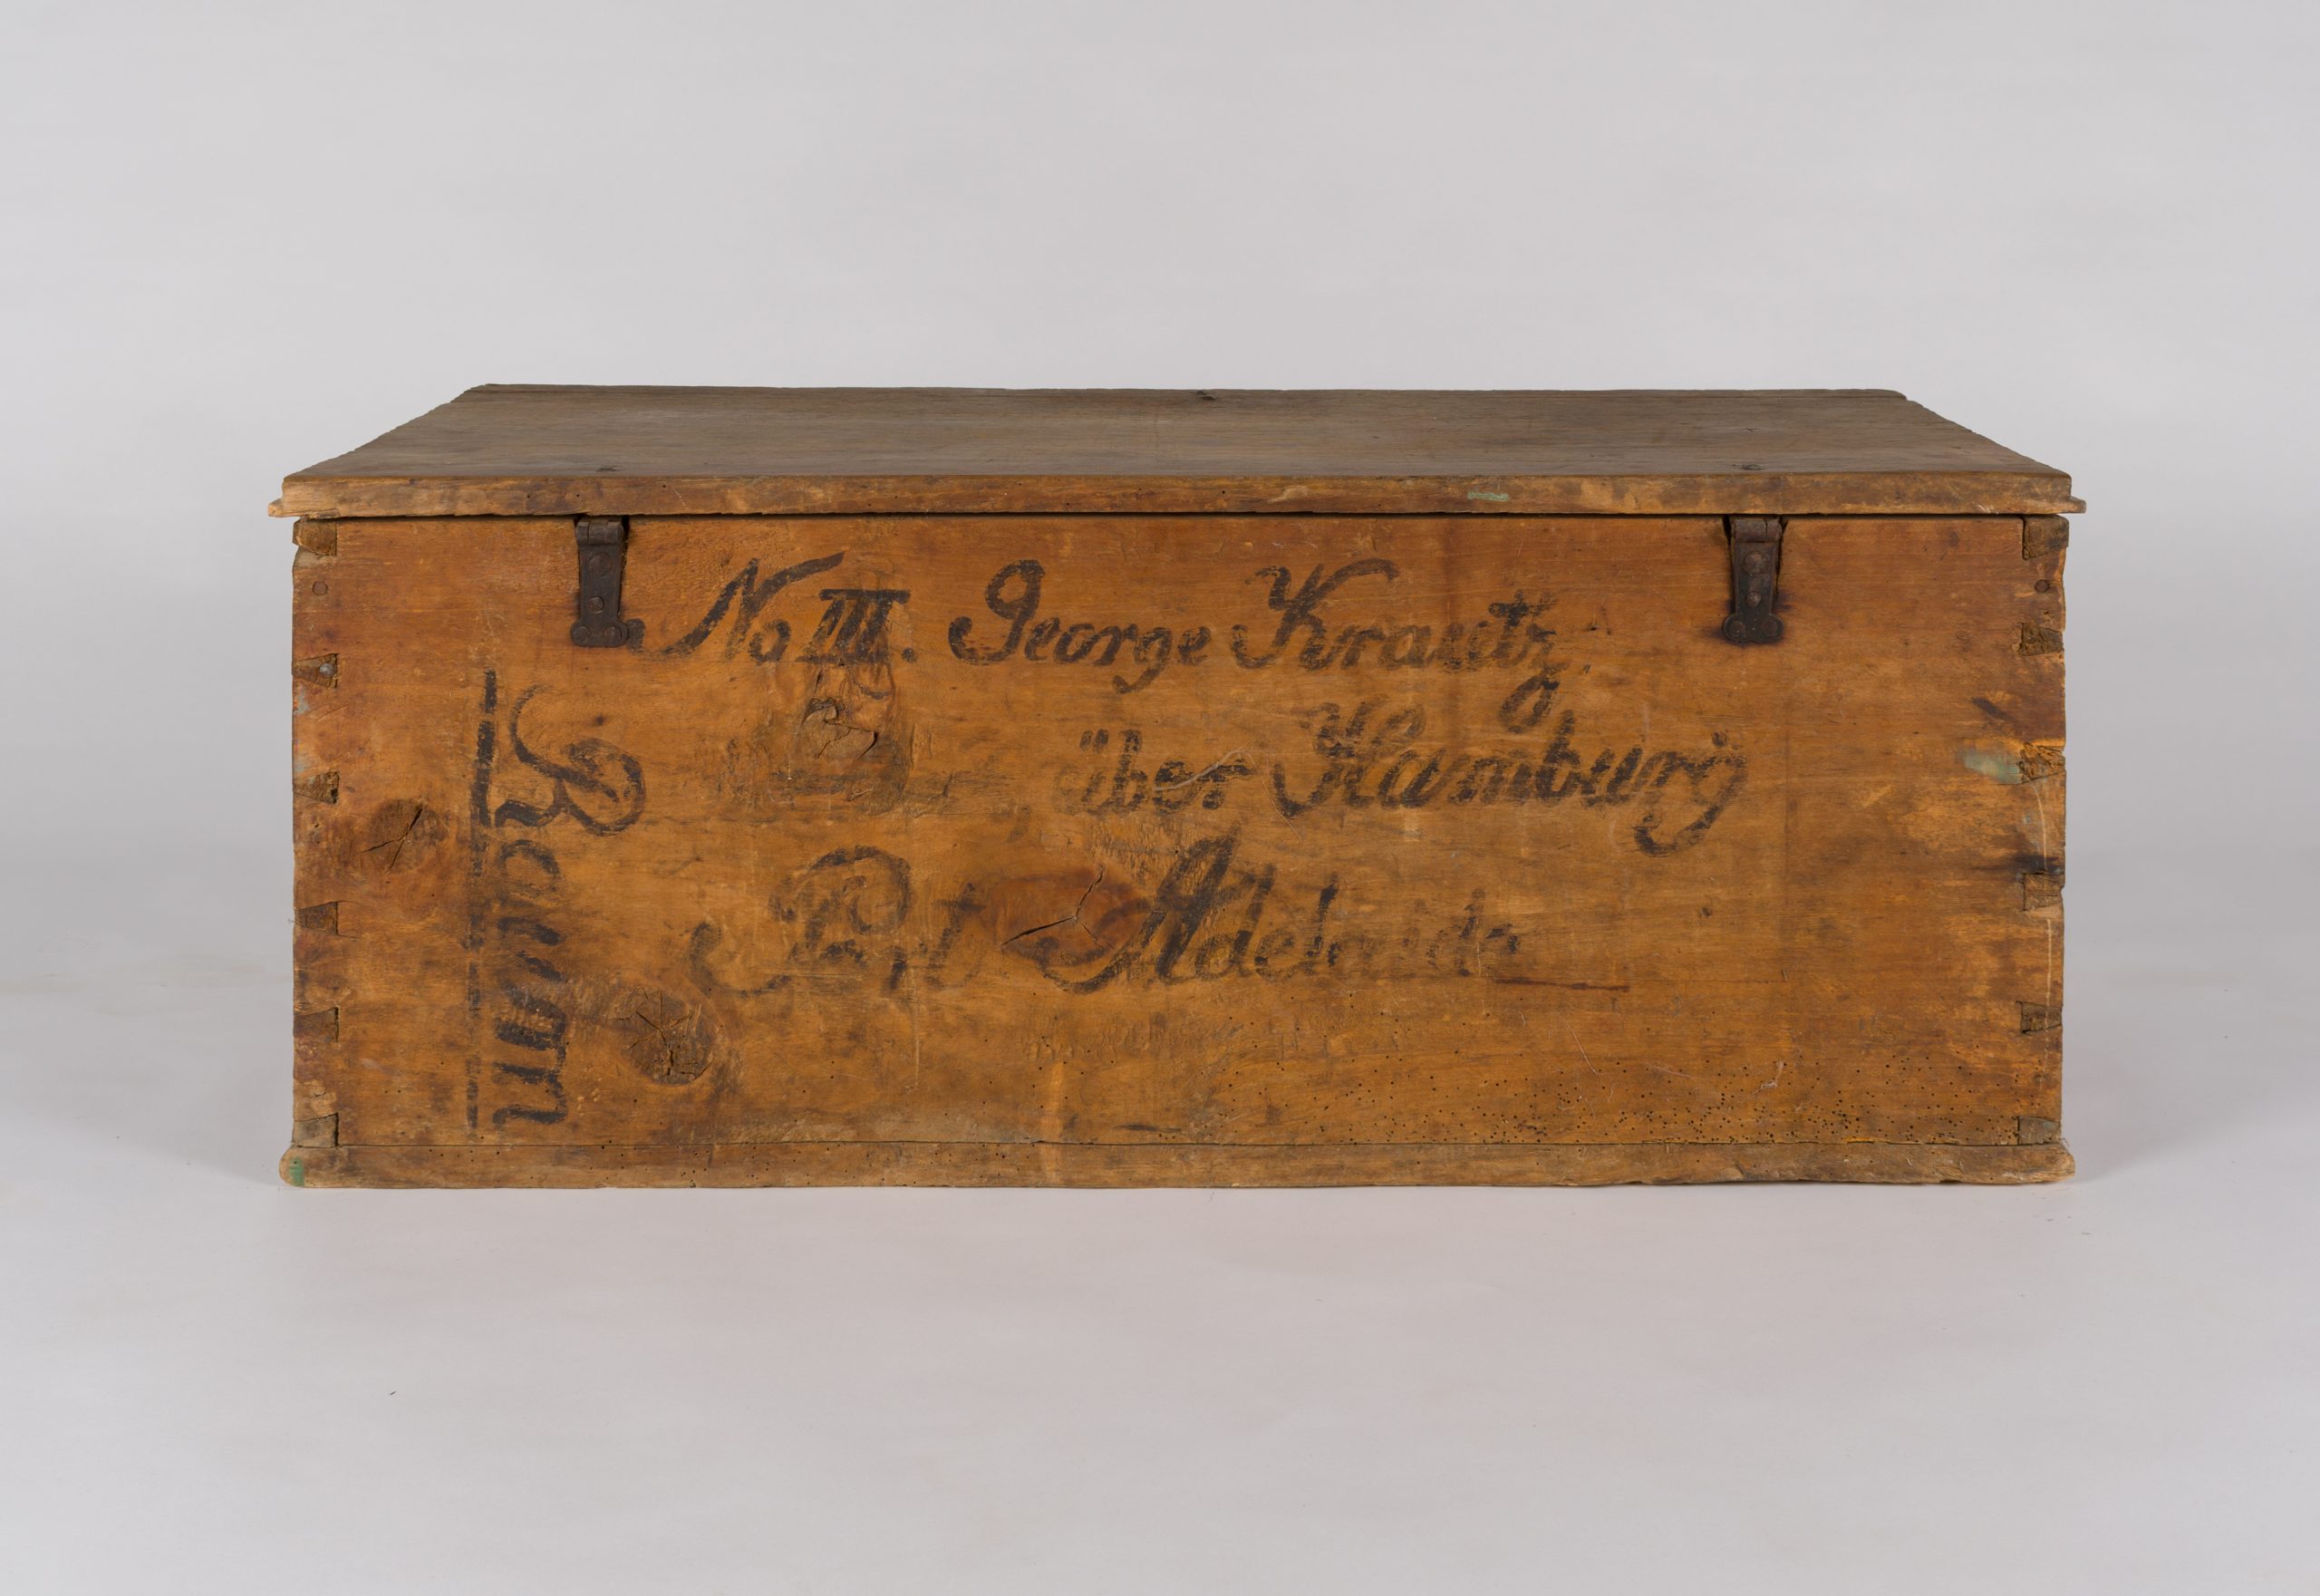 No III. George Krautz,
über Hamburg
Port Adelaide
Raum